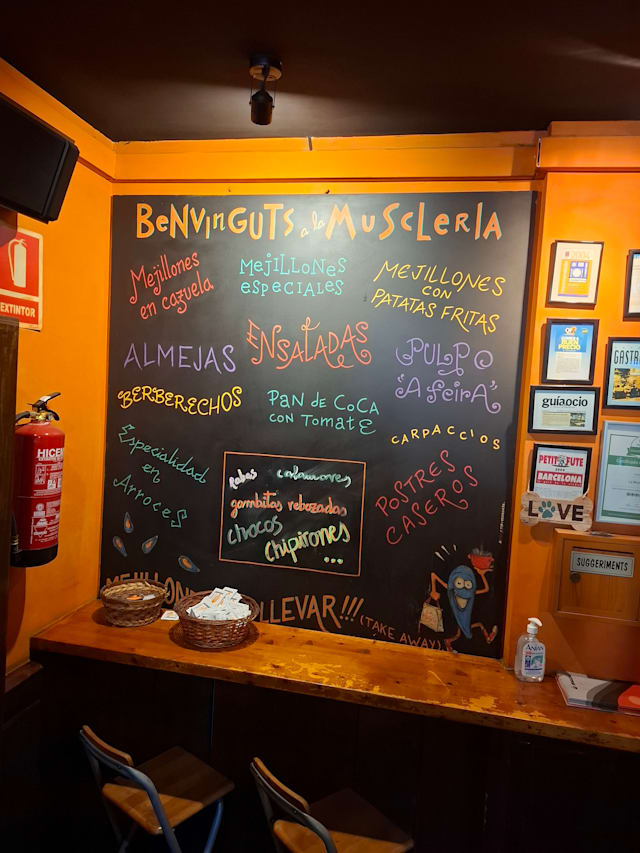 BENVINGUTS a la MUSCLERIA
Mejillones
en cazuela
MEJILLONES
ESPECIALES
MEJILLONES
CON
PATATAS FRITAS
ALMEJAS
ENSALADAS
PULPO
"A feirA"
BERBERECHOS
PAN de COCA
CON TOMATE
CARPACCIOS
Especialidad
en
Arroces
Rabas calamares
gambitas rebozadas
chocos
chipirones
...
POSTRES
CASEROS
LLEVAR!!! (TAKE AWAY)
EXTINTOR
2004
BUEN
PRECIO
GAST
guíaocio
PETIT FUTE
BARCELONA
LOVE
SUGGERIMENTS